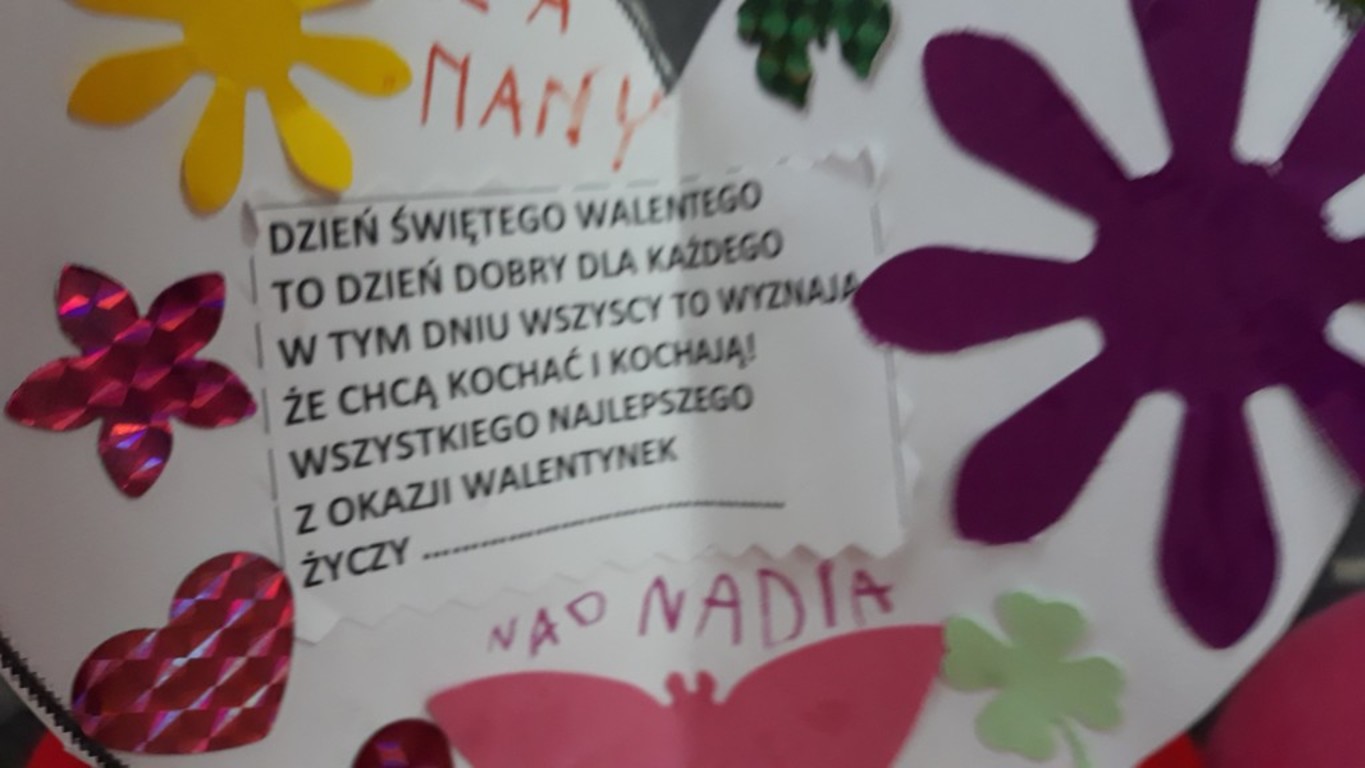 MAMY
DZIEŃ ŚWIĘTEGO WALENTEGO
TO DZIEŃ DOBRY DLA KAŻDEGO
W TYM DNIU WSZYSCY TO WYZNAJĄ
ŻE CHCĄ KOCHAĆ I KOCHAJĄ!
WSZYSTKIEGO NAJLEPSZEGO
Z OKAZJI WALENTYNEK
ŻYCZY ........................................
NAD NADIA